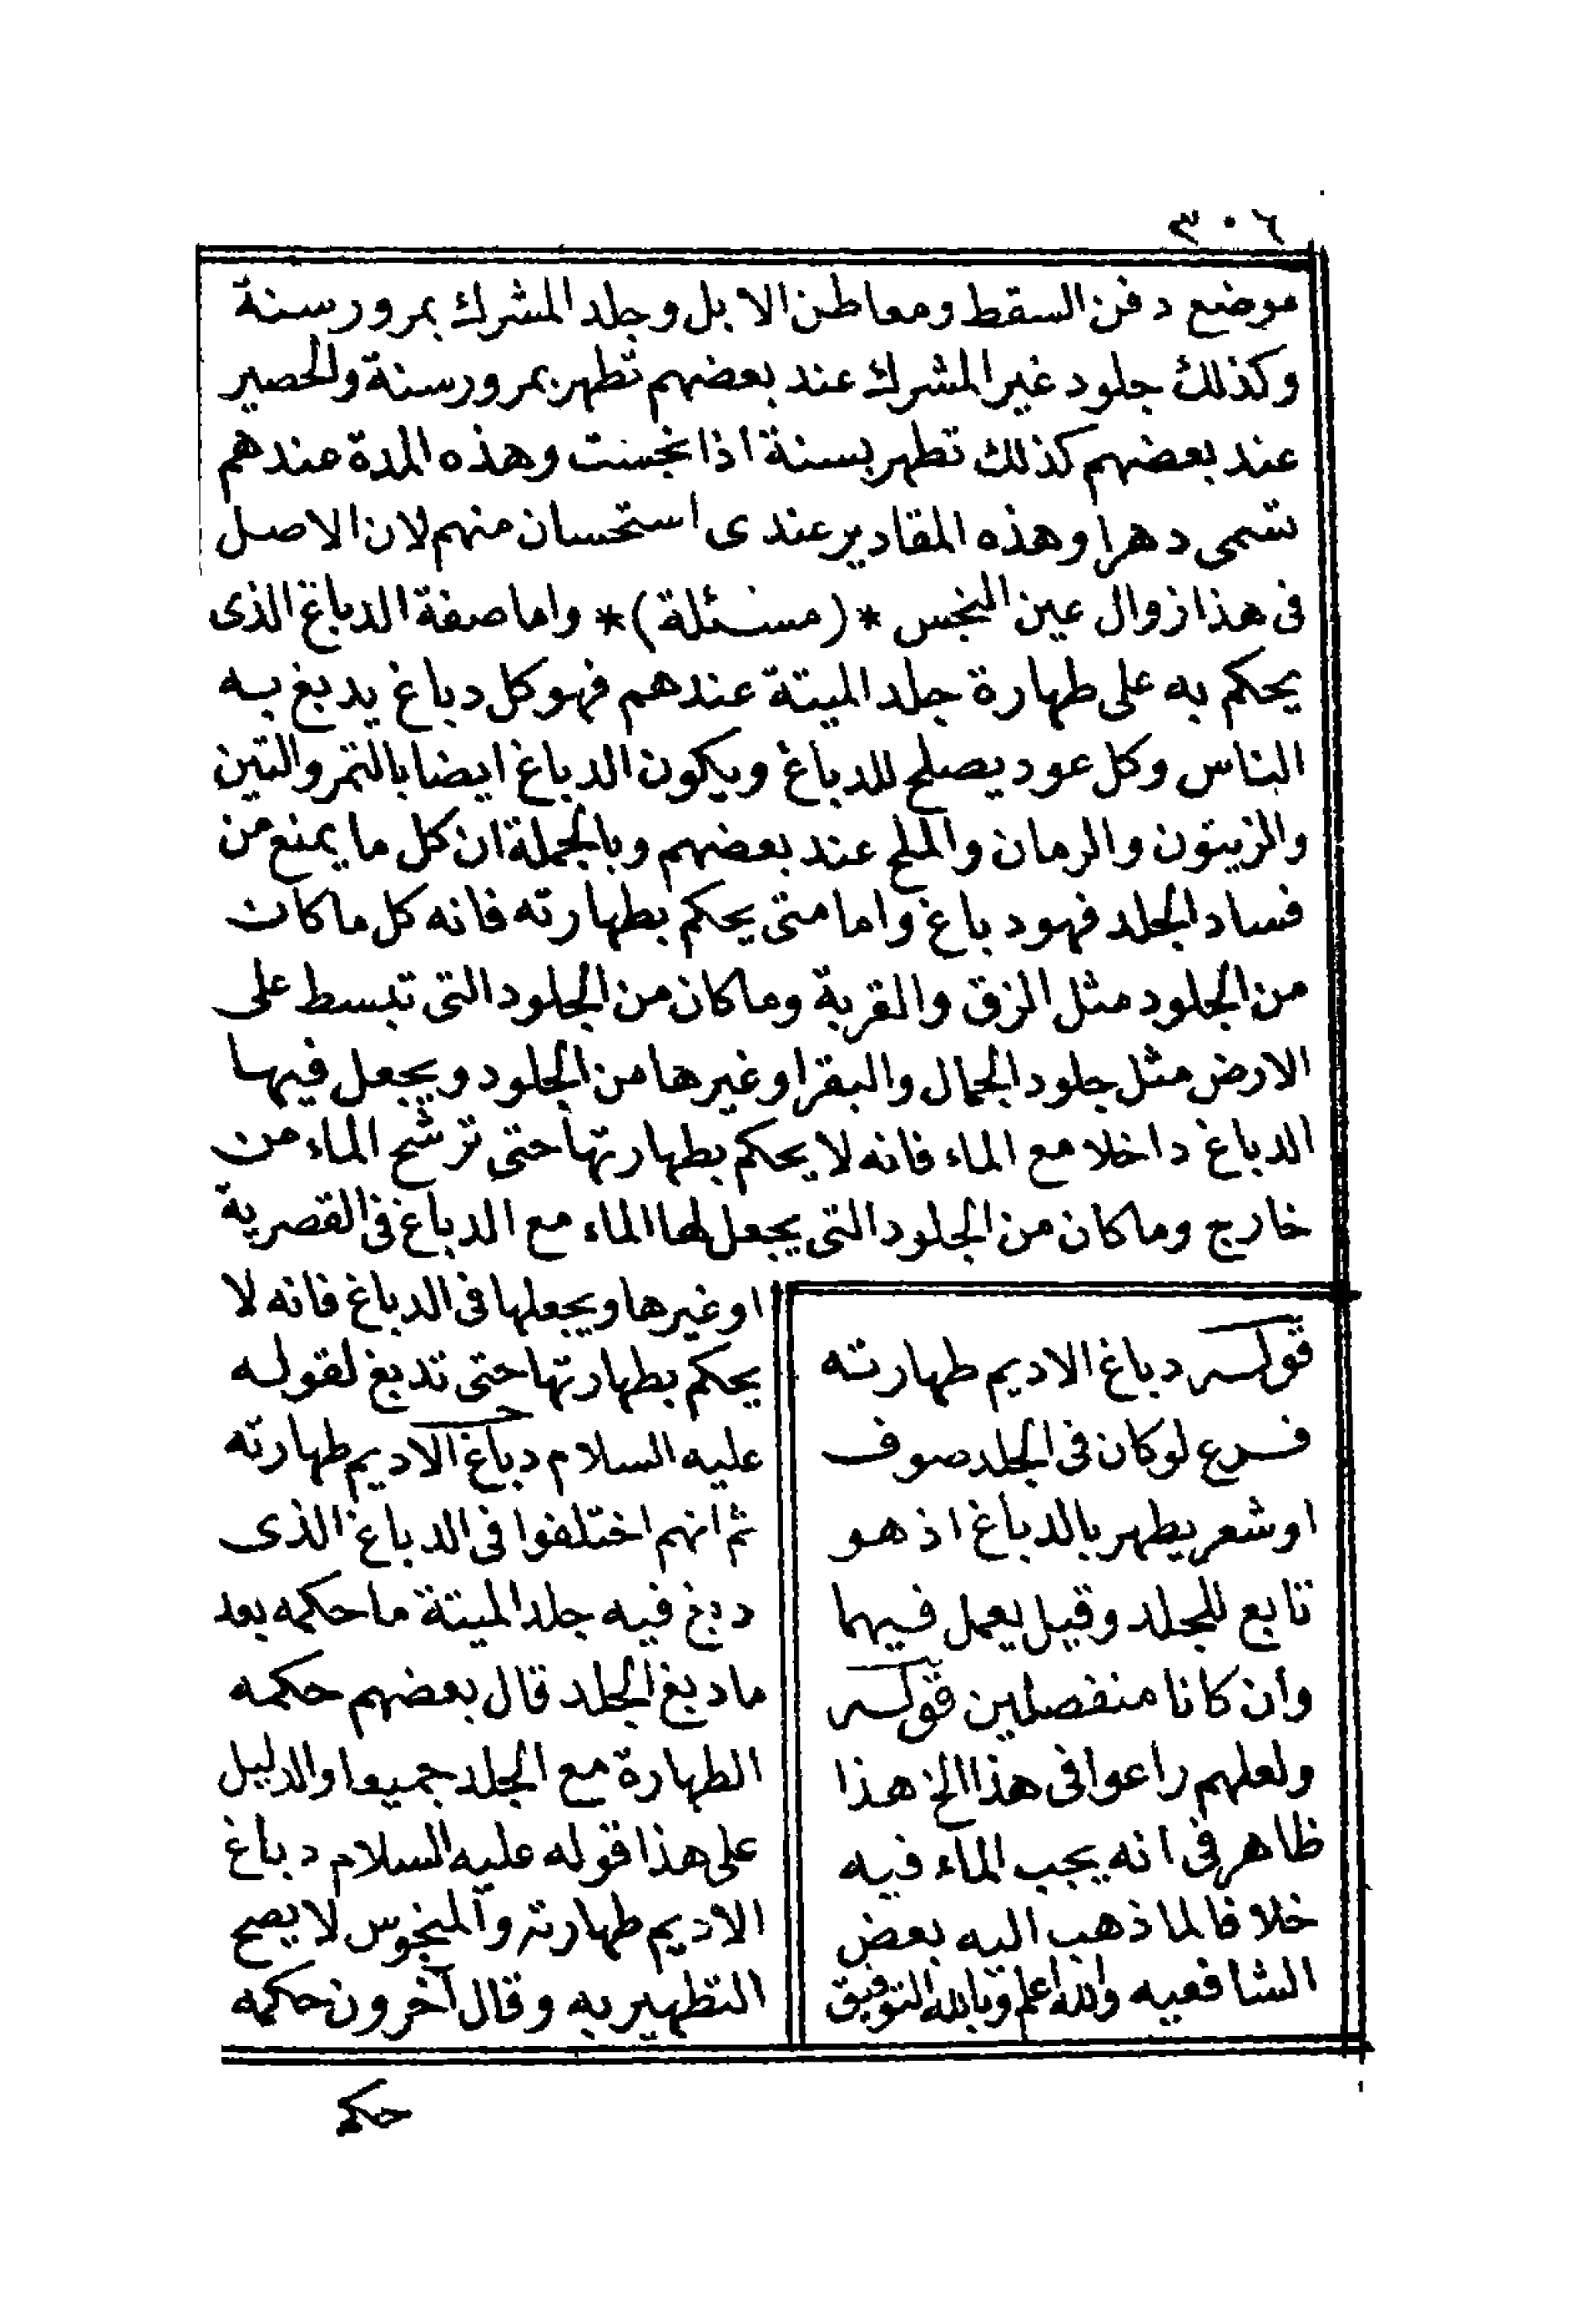 ٣٠٦
موضع دفن السقط ومعاطن الابل وجلد المشرك بمرور سنة
وكذلك جلود غير المشرك عند بعضهم تطهر بمرور سنة والحصير
عند بعضهم كذلك تطهر بسنة اذا نجست وهذه المدة عندهم
تسمى دهرا وهذه المقادير عندى استحسان منهم لان الاصل
فى هذا زوال عين النجس *(مسئلة)* واما صفة الدباغ الذى
يحكم به على طهارة جلد الميتة عندهم فهو كل دباغ يدبغ به
الناس وكل عود يصلح للدباغ ويكون الدباغ ايضا بالتمر والتين
والزيتون والرمان والملح عند بعضهم وبالجملة ان كل ما يمنع من
فساد الجلد فهو دباغ واما متى يحكم بطهارته فانه كل ما كان
من الجلود مثل الزق والقربة وما كان من الجلود التى تبسط على
الارض مثل جلود الجمال والبقر او غيرها من الجلود ويجعل فيها
الدباغ داخلا مع الماء فانه لا يحكم بطهارتها حتى ترشح الماء من
خارج وما كان من الجلود التى يجعل لها الماء مع الدباغ فى القصرية
او غيرها ويجعلها فى الدباغ فانه لا
يحكم بطهارتها حتى تدبغ لقوله
عليه السلام دباغ الاديم طهارته
ثم انهم اختلفوا فى الدباغ الذى
دبغ فيه جلد الميتة ما حكمه بعد
ما دبغ الجلد قال بعضهم حكمه
الطهارة مع الجلد جميعا والدليل
على هذا قوله عليه السلام دباغ
الاديم طهارته والمنجوس لا يصح
التطهير به وقال آخرون حكمه
قوله دباغ الاديم طهارته
فرع لو كان فى الجلد صوف
او شعر يطهر بالدباغ اذ هو
تابع للجلد وقيل يعمل فيهما
وان كانا منفصلين قوله
ولعلهم راعوا فى هذا الخ هذا
ظاهر فى انه يجب الماء فيه
خلافا لما ذهب اليه بعض
الشافعيه والله اعلم وبالله التوفيق
حكم